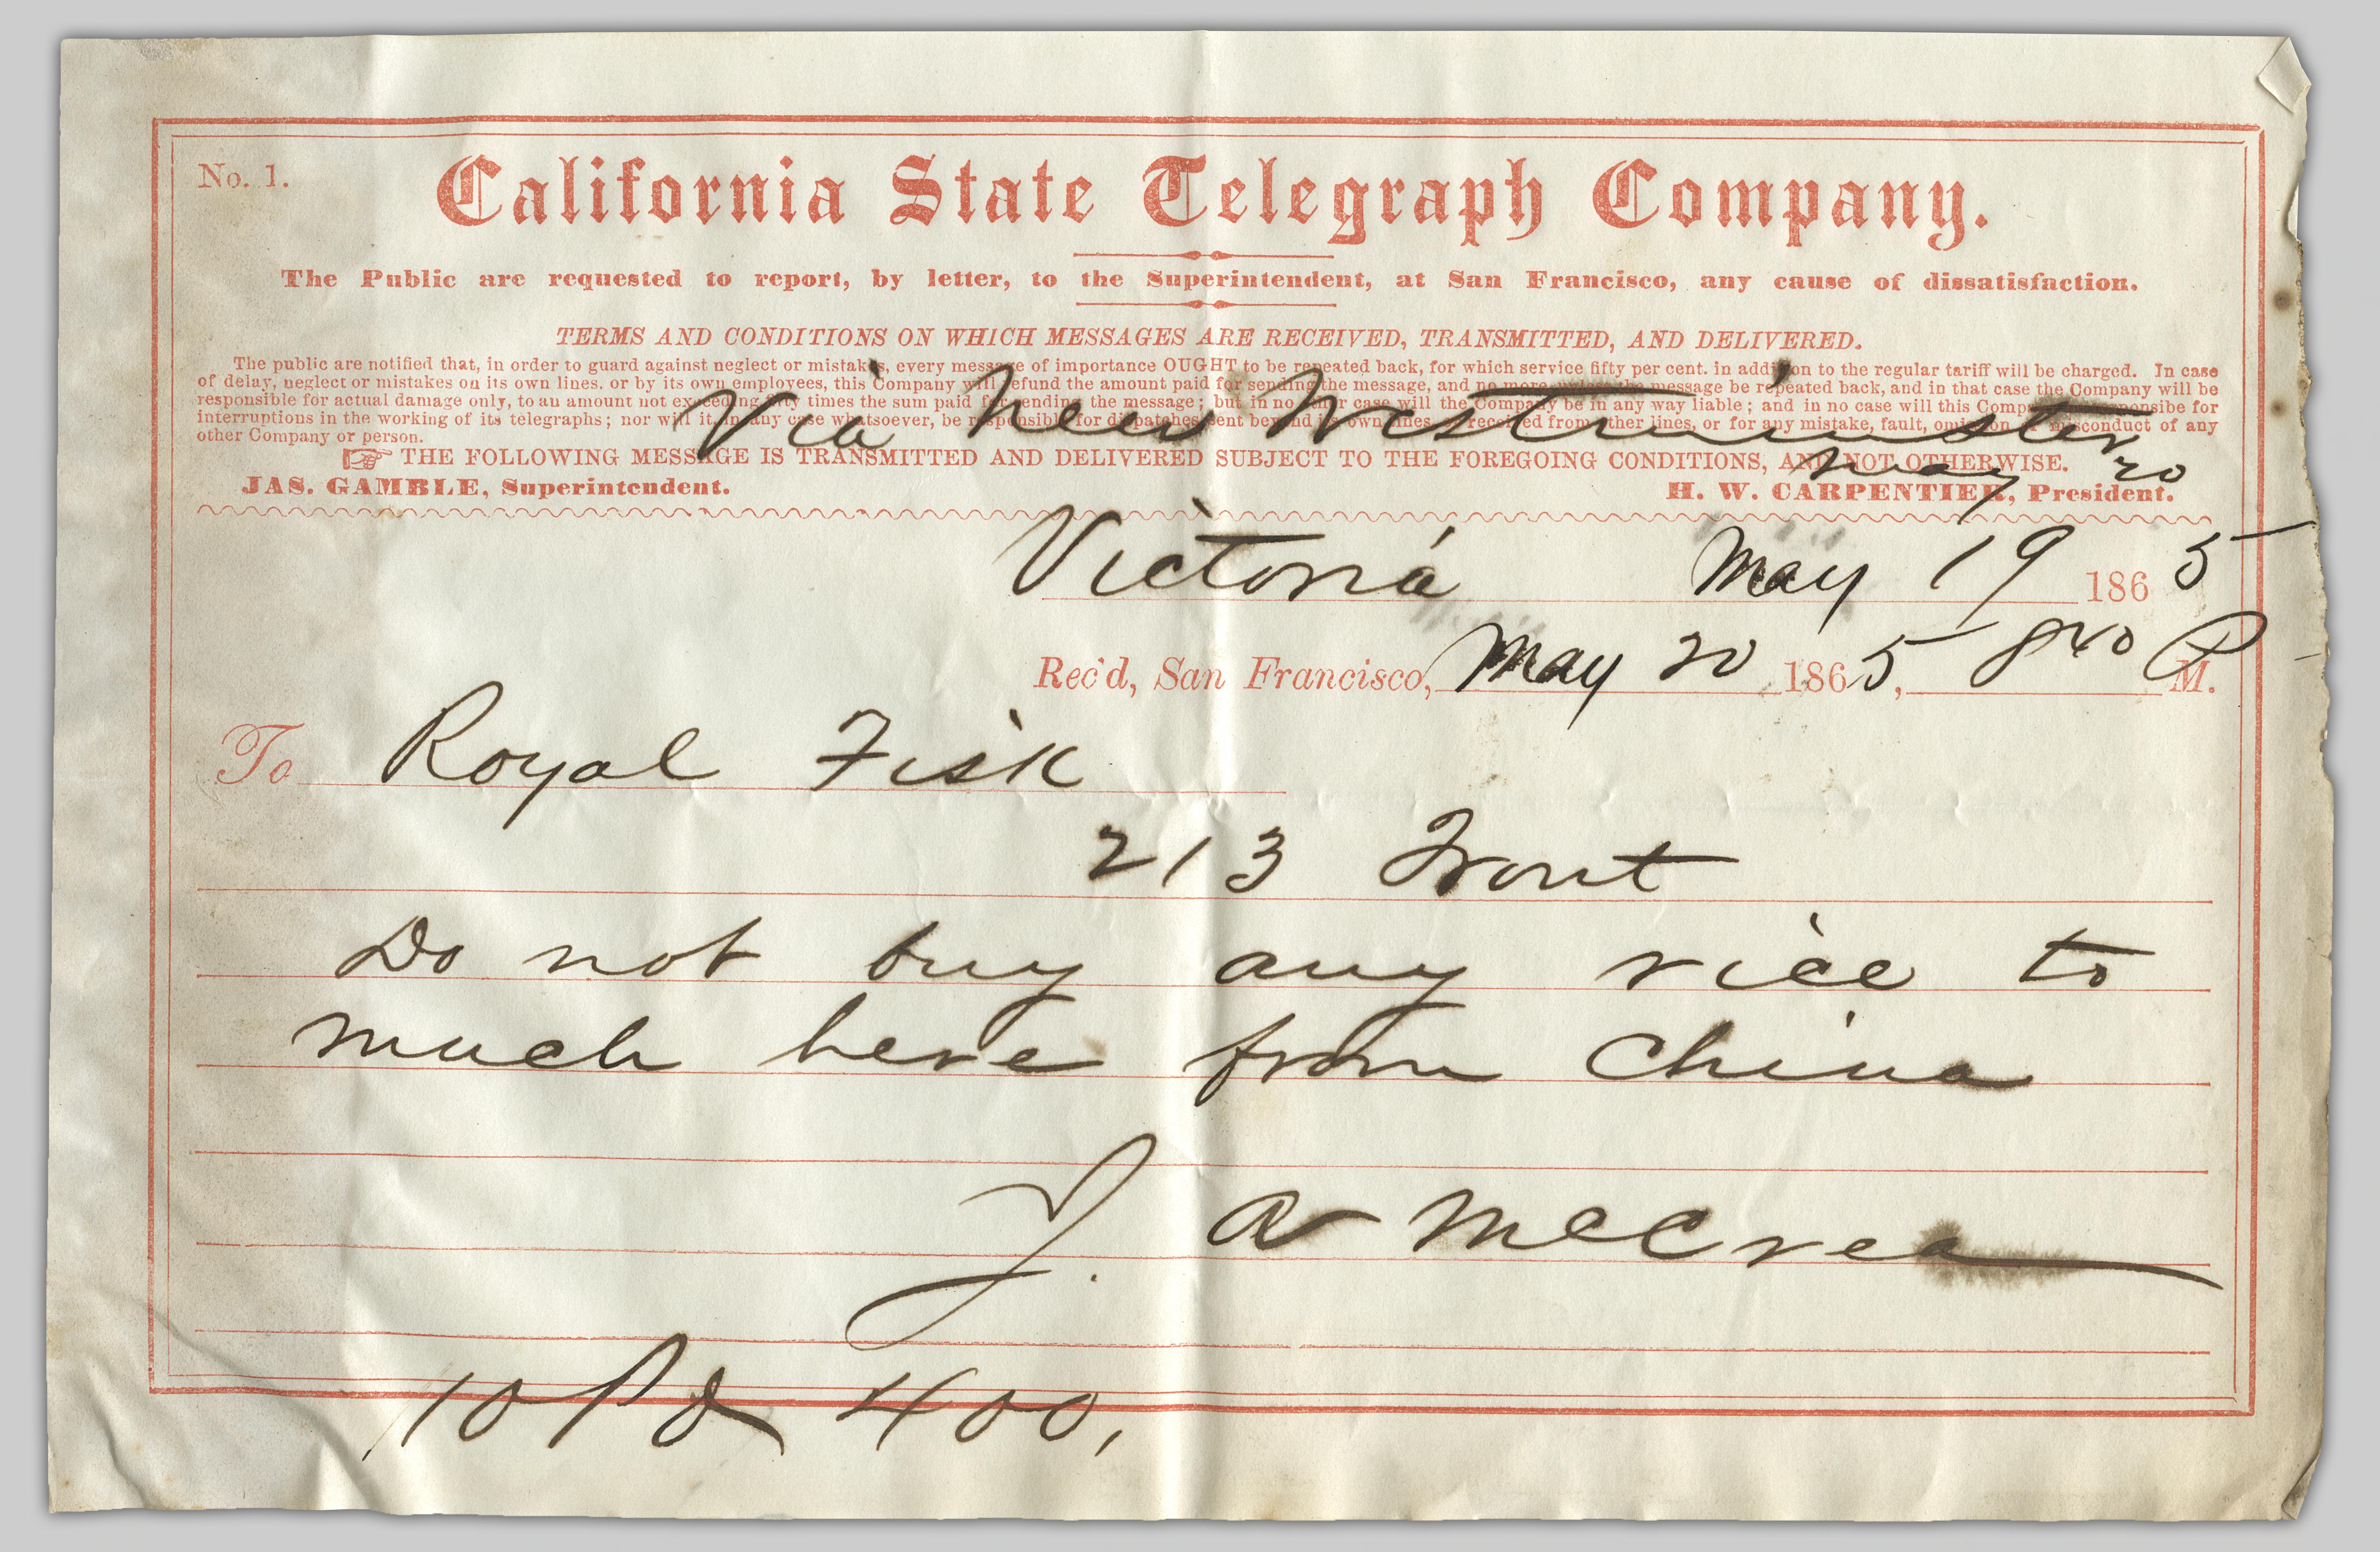 No. 1.
California State Telegraph Company.
The Public are requested to report, by letter, to the Superintendent, at San Francisco, any cause of dissatisfaction.
TERMS AND CONDITIONS ON WHICH MESSAGES ARE RECEIVED, TRANSMITTED, AND DELIVERED.
The public are notified that, in order to guard against neglect or mistakes, every message of importance OUGHT to be repeated back, for which service fifty per cent. in addition to the regular tariff will be charged. In case
of delay, neglect or mistakes on its own lines. or by its own employees, this Company will refund the amount paid for sending the message, and no more unless the message be repeated back, and in that case the Company will be
responsible for actual damage only, to an amount not exceeding fifty times the sum paid for sending the message; but in no other case will the Company be in any way liable; and in no case will this Company be responsibe for
interruptions in the working of its telegraphs; nor will it, in any case whatsoever, be responsible for dispatches sent beyond its own lines, or received from other lines, or for any mistake, fault, omission or misconduct of any
other Company or person.
Via New Westminster
☞ THE FOLLOWING MESSAGE IS TRANSMITTED AND DELIVERED SUBJECT TO THE FOREGOING CONDITIONS, AND NOT OTHERWISE.
May 20
JAS. GAMBLE, Superintendent. H. W. CARPENTIER, President.
Victoria May 19 1865
Rec'd, San Francisco, May 20 1865, 840 P M.
To Royal Fisk
213 Front
Do not buy any rice to
much here from China
J. A McCrea
10 Pd 400,